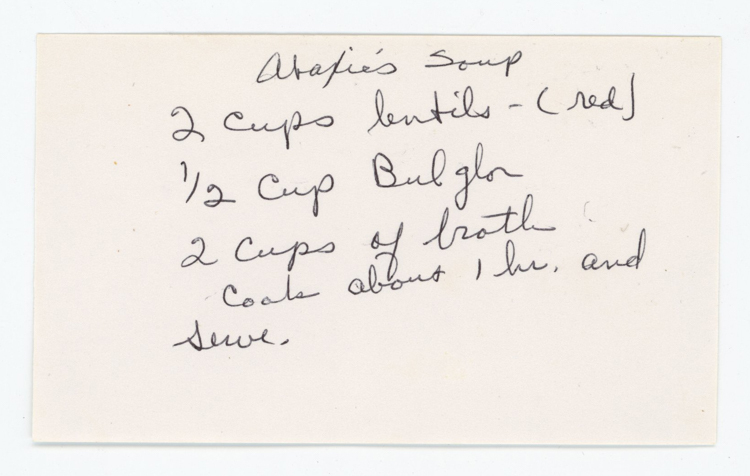 Arafie's Soup
2 Cups lentils - (red)
1/2 Cup Bulglor
2 Cups of broth
Cook about 1 hr. and
serve.